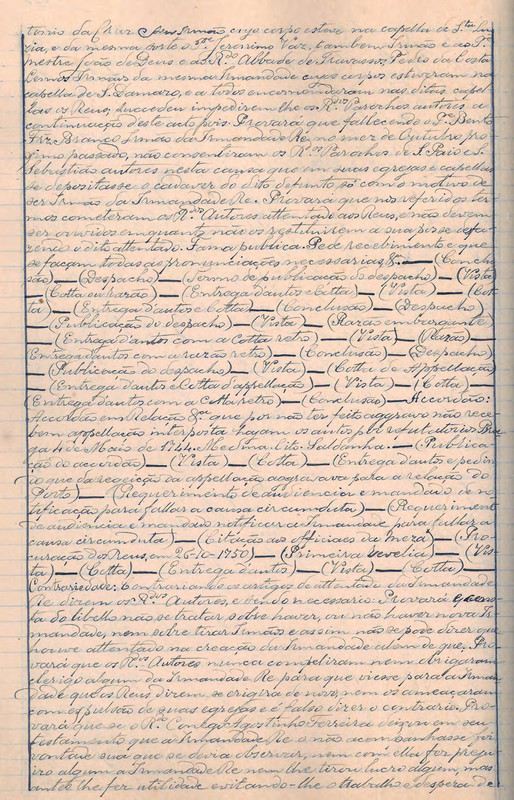 tonio da Cruz seu Irmão cujo corpo estava na capella de S.ta Lu-
zia, e da mesma sorte o S.r Jeronimo Vaz, tambem Irmão e ao P.e
mestre João de Deus e ao R.do Abbade de Travassos, Pedro da Costa
Lemos Irmãos da mesma Irmandade cujos corpos estiveram na
capella de S. Lamaro, e a todos encommendaram nas ditas capel-
las os Reus, succedeu impedirem-lhe os R.dos Parochos autores a
continuação deste auto pois. Provará que fallecendo o P.e Bento
Frz. Branco Irmão da Irmandade Ré, no mez de Outubro, pro-
ximo passado, não consentiram os R.dos Parochos de S. Paio e S.
Sebastião autores nesta causa que em suas egrejas e capellas
se depositasse o cadaver do dito defunto, só com o motivo de
ser Irmão da Irmandade Ré. Provará que nos referidos ter-
mos cometeram os R.dos Autores attentado aos Reus, e não devem
ser ouvidos emquanto não os restituirem a sua posse e
o dito attentado. Fama publica. Pede recebimento e que
se façam todas as pronunciações necessarias, &.—(Conclu-
são)—(Despacho)—(Termo de publicação do despacho)—(Vista)
—(Cotta ou razão)—(Entrega d'autos e Cotta)—(Vista)—(Cot-
ta)—(Entrega d'autos e Cotta)—(Conclusão)—(Despacho)
—(Publicação do despacho)—(Vista)—(Razão embargante)
—(Entrega d'autos com a Cotta retro)—(Vista)—(Razão)—
Entrega d'autos com a razão retro)—(Conclusão)—(Despacho)
—(Publicação do despacho)—(Vista)—(Cotta de Appellação)
—(Entrega d'autos e Cotta d'appellação)—(Vista)—(Cotta)—
(Entrega d'autos com a Cotta retro)—(Conclusão—Accordão:
Accordão em Relação &.a que por não ter feito aggravo não rece-
bem appellação interposta hajam os autos por Bra-
ga 4 de Maio de 1744. Medina. Cit. Saldanha.—(Publica-
ção do accordão)—(Vista)—(Cotta)—(Entrega d'autos e pedin-
do que da regeição da appellação aggravava para a relação do
Porto)—(Requerimento de audiencia e mandado de no-
tificação para fallar a causa circumduta)—(Requeriment
de audiencia e mandado notificar a Irmandade para fallar a
causa circumduta)—(Citação aos Officiaes da Meza)—(Pro-
curação dos Reus, em 26-10-1750)—(Primeira revelia)—(Vis-
ta)—(Cotta)—(Entrega d'autos)—(Vista)—(Cotta)—
Contrariedade: Contrariando os artigos de attentado da Irmandade
Ré dizem os R.dos Autores, e sendo necessario: Provará que cons-
ta do libello não se tratar sobre haver, ou não haver nova Ir-
mandade, nem sobre tirar Irmãos e assim não se póde dizer que
houve attentado na creação da Irmandade além de que, Pro-
vará que os R.dos Autores nunca compeliram nem obrigaram
clerigo algum da Irmandade Ré para que viesse para a Irman-
dade que os Reus dizem se erigira de novo, nem os ameaçaram
com expulsão de suas egrejas e é falso dizer o contrario. Pro-
vará que se o R.do Conego Agostinho Ferreira deixou em seu
testamento que a Irmandade Ré o não acompanhasse foi
vontade sua que se devia observar, nem com ella fez preju-
izo algum a Irmandade Ré nem lhe tirou lucro algum, mas
antes lhe fez utilidade evitando-lhe o trabalho e despeza de